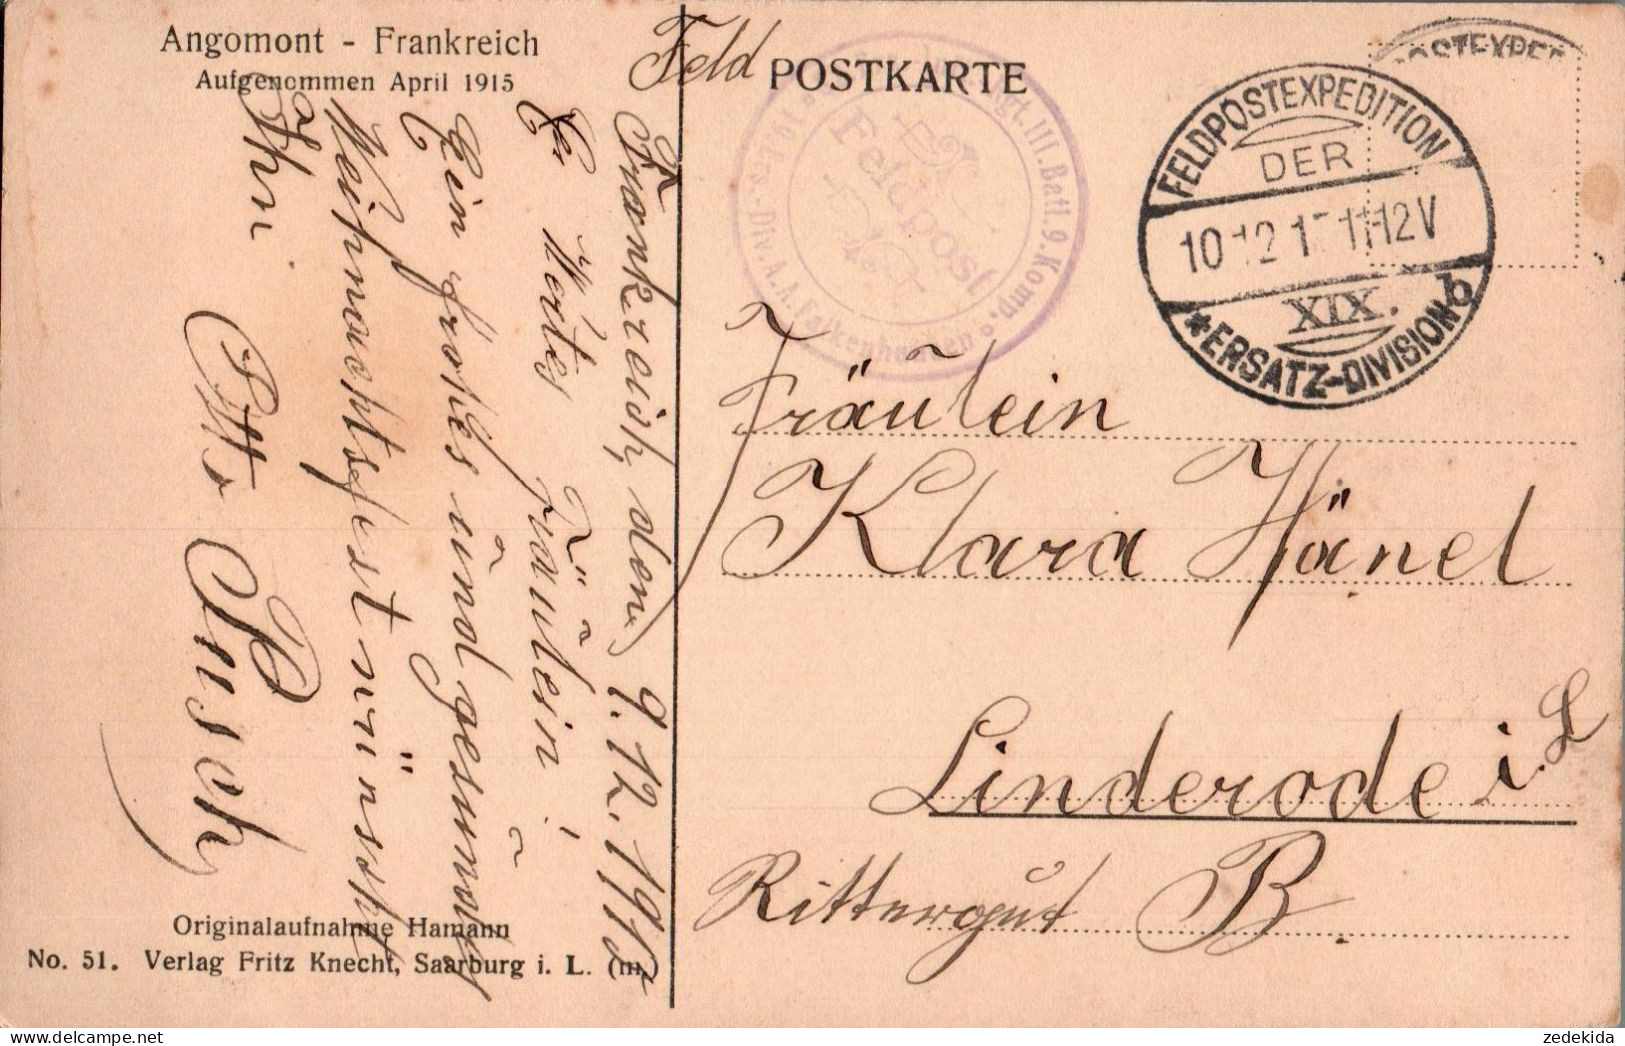 Angomont - Frankreich
Aufgenommen April 1915
Feld POSTKARTE
Frankreich, den 9.12.1915
Wertes Fräulein!
Ein frohes und gesundes
Weihnachtsfest wünscht
Ihn
Otto Pusch
Originalaufnahme Hamann
No. 51. Verlag Fritz Knecht, Saarburg i. L. (m)
Rgt. III. Batl. 9. Komp.
19. Ers.-Div. A.A. Falkenhausen
Feldpost
POSTEXPED
FELDPOSTEXPEDITION
DER
10 12 1 11-12V
XIX.
*ERSATZ-DIVISION b
Fräulein
Klara Hänel
Linderode i. L
Rittergut B.
zedekida